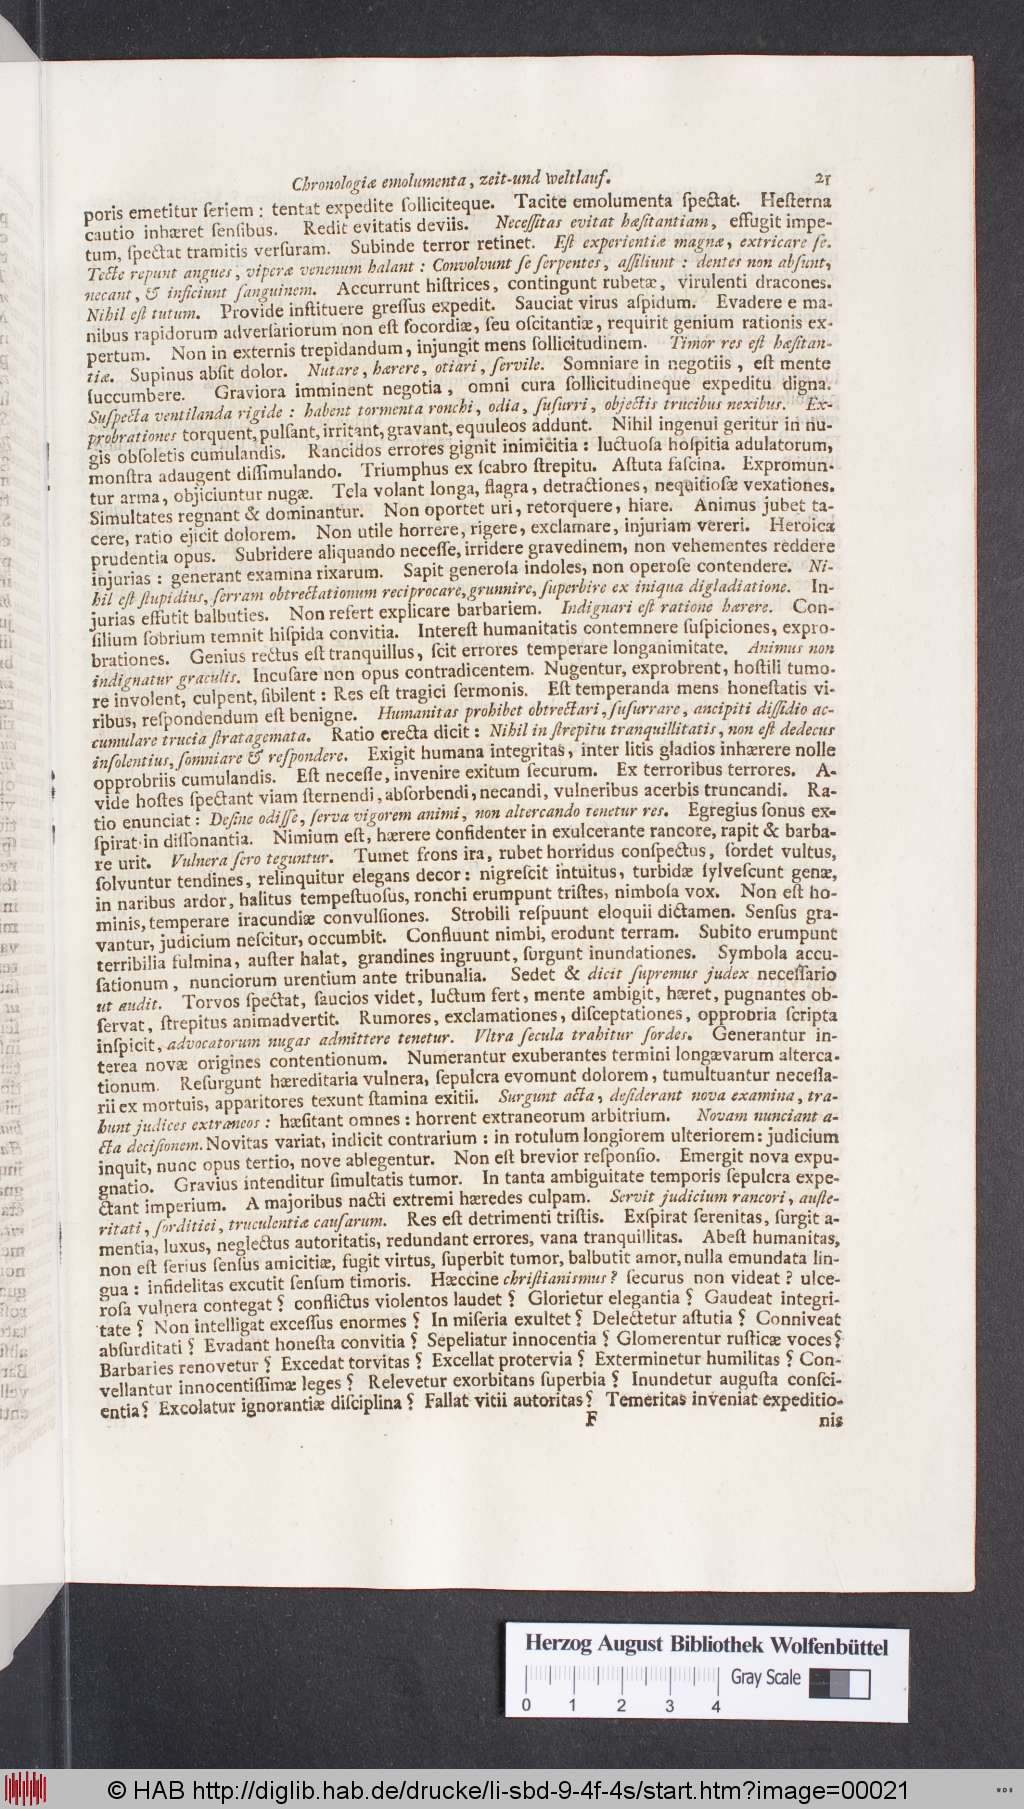 Chronologiæ emolumenta, zeit-und weltlauf. 21
poris emetitur ſeriem : tentat expedite ſolliciteque. Tacite emolumenta ſpectat. Heſterna
cautio inhæret ſenſibus. Redit evitatis deviis. Neceſſitas evitat hæſitantiam, effugit impe-
tum, ſpectat tramitis verſuram. Subinde terror retinet. Eſt experientiæ magnæ, extricare ſe.
Tecte repunt angues, viperæ venenum halant : Convolvunt ſe ſerpentes, aſſiliunt : dentes non abſunt,
necant, & inficiunt ſanguinem. Accurrunt hiſtrices, contingunt rubetæ, virulenti dracones.
Nihil eſt tutum. Provide inſtituere greſſus expedit. Sauciat virus aſpidum. Evadere e ma-
nibus rapidorum adverſariorum non eſt ſocordiæ, ſeu oſcitantiæ, requirit genium rationis ex-
pertum. Non in externis trepidandum, injungit mens ſollicitudinem. Timor res eſt hæſitan-
tiæ. Supinus abſit dolor. Nutare, hærere, otiari, ſervile. Somniare in negotiis, eſt mente
ſuccumbere. Graviora imminent negotia, omni cura ſollicitudineque expeditu digna.
Suſpecta ventilanda rigide : habent tormenta ronchi, odia, ſuſurri, objectis trucibus nexibus. Ex-
probrationes torquent, pulſant, irritant, gravant, equuleos addunt. Nihil ingenui geritur in nu-
gis obſoletis cumulandis. Rancidos errores gignit inimicitia : luctuoſa hoſpitia adulatorum,
monſtra adaugent diſſimulando. Triumphus ex ſcabro ſtrepitu. Aſtuta faſcina. Expromun-
tur arma, objiciuntur nugæ. Tela volant longa, flagra, detractiones, nequitioſæ vexationes.
Simultates regnant & dominantur. Non oportet uri, retorquere, hiare. Animus jubet ta-
cere, ratio ejicit dolorem. Non utile horrere, rigere, exclamare, injuriam vereri. Heroica
prudentia opus. Subridere aliquando neceſſe, irridere gravedinem, non vehementes reddere
injurias : generant examina rixarum. Sapit generoſa indoles, non operoſe contendere. Ni-
hil eſt ſtupidius, ſerram obtrectationum reciprocare, grunnire, ſuperbire ex iniqua digladiatione. In-
jurias effutit balbuties. Non refert explicare barbariem. Indignari eſt ratione hærere. Con-
ſilium ſobrium temnit hiſpida convitia. Intereſt humanitatis contemnere ſuſpiciones, expro-
brationes. Genius rectus eſt tranquillus, ſcit errores temperare longanimitate. Animus non
indignatur graculis. Incuſare non opus contradicentem. Nugentur, exprobrent, hoſtili tumo-
re involent, culpent, ſibilent : Res eſt tragici ſermonis. Eſt temperanda mens honeſtatis vi-
ribus, reſpondendum eſt benigne. Humanitas prohibet obtrectari, ſuſurrare, ancipiti diſſidio ac-
cumulare trucia ſtratagemata. Ratio erecta dicit : Nihil in ſtrepitu tranquillitatis, non eſt dedecus
inſolentius, ſomniare & reſpondere. Exigit humana integritas, inter litis gladios inhærere nolle
opprobriis cumulandis. Eſt neceſſe, invenire exitum ſecurum. Ex terroribus terrores. A-
vide hoſtes ſpectant viam ſternendi, abſorbendi, necandi, vulneribus acerbis truncandi. Ra-
tio enunciat : Deſine odiſſe, ſerva vigorem animi, non altercando tenetur res. Egregius ſonus ex-
ſpirat in diſſonantia. Nimium eſt, hærere confidenter in exulcerante rancore, rapit & barba-
re urit. Vulnera ſero teguntur. Tumet frons ira, rubet horridus conſpectus, ſordet vultus,
ſolvuntur tendines, relinquitur elegans decor : nigreſcit intuitus, turbidæ ſylveſcunt genæ,
in naribus ardor, halitus tempeſtuoſus, ronchi erumpunt triſtes, nimboſa vox. Non eſt ho-
minis, temperare iracundiæ convulſiones. Strobili reſpuunt eloquii dictamen. Senſus gra-
vantur, judicium neſcitur, occumbit. Confluunt nimbi, erodunt terram. Subito erumpunt
terribilia fulmina, auſter halat, grandines ingruunt, ſurgunt inundationes. Symbola accu-
ſationum, nunciorum urentium ante tribunalia. Sedet & dicit ſupremus judex neceſſario
ut audit. Torvos ſpectat, ſaucios videt, luctum fert, mente ambigit, hæret, pugnantes ob-
ſervat, ſtrepitus animadvertit. Rumores, exclamationes, diſceptationes, opprobria ſcripta
inſpicit, advocatorum nugas admittere tenetur. Vltra ſecula trahitur ſordes. Generantur in-
terea novæ origines contentionum. Numerantur exuberantes termini longævarum alterca-
tionum. Reſurgunt hæreditaria vulnera, ſepulcra evomunt dolorem, tumultuantur neceſſa-
rii ex mortuis, apparitores texunt ſtamina exitii. Surgunt acta, deſiderant nova examina, tra-
hunt judices extraneos : hæſitant omnes : horrent extraneorum arbitrium. Novam nunciant a-
cta deciſionem. Novitas variat, indicit contrarium : in rotulum longiorem ulteriorem : judicium
inquit, nunc opus tertio, nove ablegentur. Non eſt brevior reſponſio. Emergit nova expu-
gnatio. Gravius intenditur ſimultatis tumor. In tanta ambiguitate temporis ſepulcra expe-
ctant imperium. A majoribus nacti extremi hæredes culpam. Servit judicium rancori, auſte-
ritati, ſorditiei, truculentiæ cauſarum. Res eſt detrimenti triſtis. Exſpirat ſerenitas, ſurgit a-
mentia, luxus, neglectus autoritatis, redundant errores, vana tranquillitas. Abeſt humanitas,
non eſt ſerius ſenſus amicitiæ, fugit virtus, ſuperbit tumor, balbutit amor, nulla emundata lin-
gua : infidelitas excutit ſenſum timoris. Hæccine chriſtianismus? ſecurus non videat ? ulce-
roſa vulnera contegat ? conflictus violentos laudet ? Glorietur elegantia ? Gaudeat integri-
tate ? Non intelligat exceſſus enormes ? In miſeria exultet ? Delectetur aſtutia ? Conniveat
abſurditati ? Evadant honeſta convitia ? Sepeliatur innocentia ? Glomerentur ruſticæ voces?
Barbaries renovetur ? Excedat torvitas ? Excellat protervia ? Exterminetur humilitas ? Con-
vellantur innocentiſſimæ leges ? Relevetur exorbitans ſuperbia ? Inundetur auguſta conſci-
entia? Excolatur ignorantiæ diſciplina ? Fallat vitii autoritas? Temeritas inveniat expeditio-
F nis
Herzog August Bibliothek Wolfenbüttel
Gray Scale
0 1 2 3 4
© HAB http://diglib.hab.de/drucke/li-sbd-9-4f-4s/start.htm?image=00021